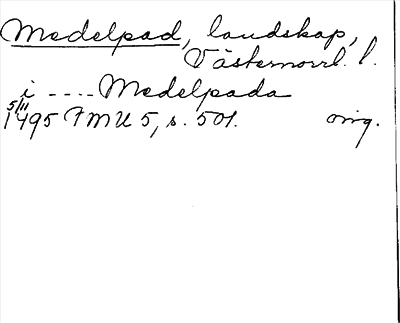 Medelpad, landskap,
Västernorrl. l.
i ---- Medelpada
5/11
1495 FMU 5, s. 501. orig.